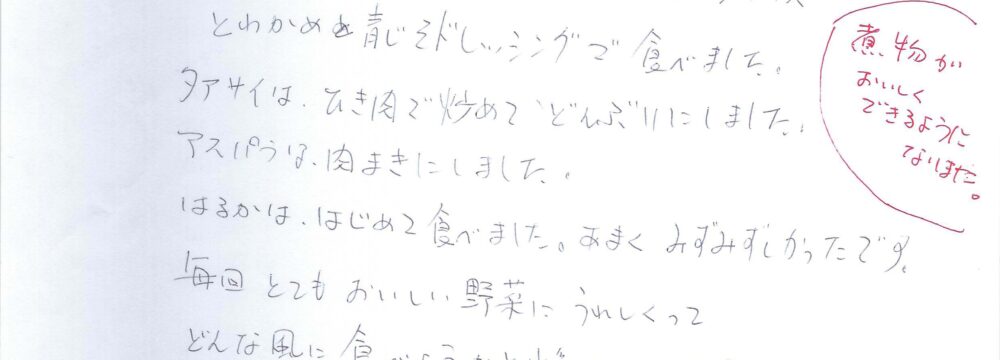 とわかめを青じそドレッシングで食べました。
タアサイは、ひき肉で炒めてどんぶりにしました。
アスパラは、肉まきにしました。
はるかは、はじめて食べました。あまくみずみずしかったです。
毎回とてもおいしい野菜にうれしくって
どんな風に食べようかと
煮物が
おいしく
できるように
なりました。